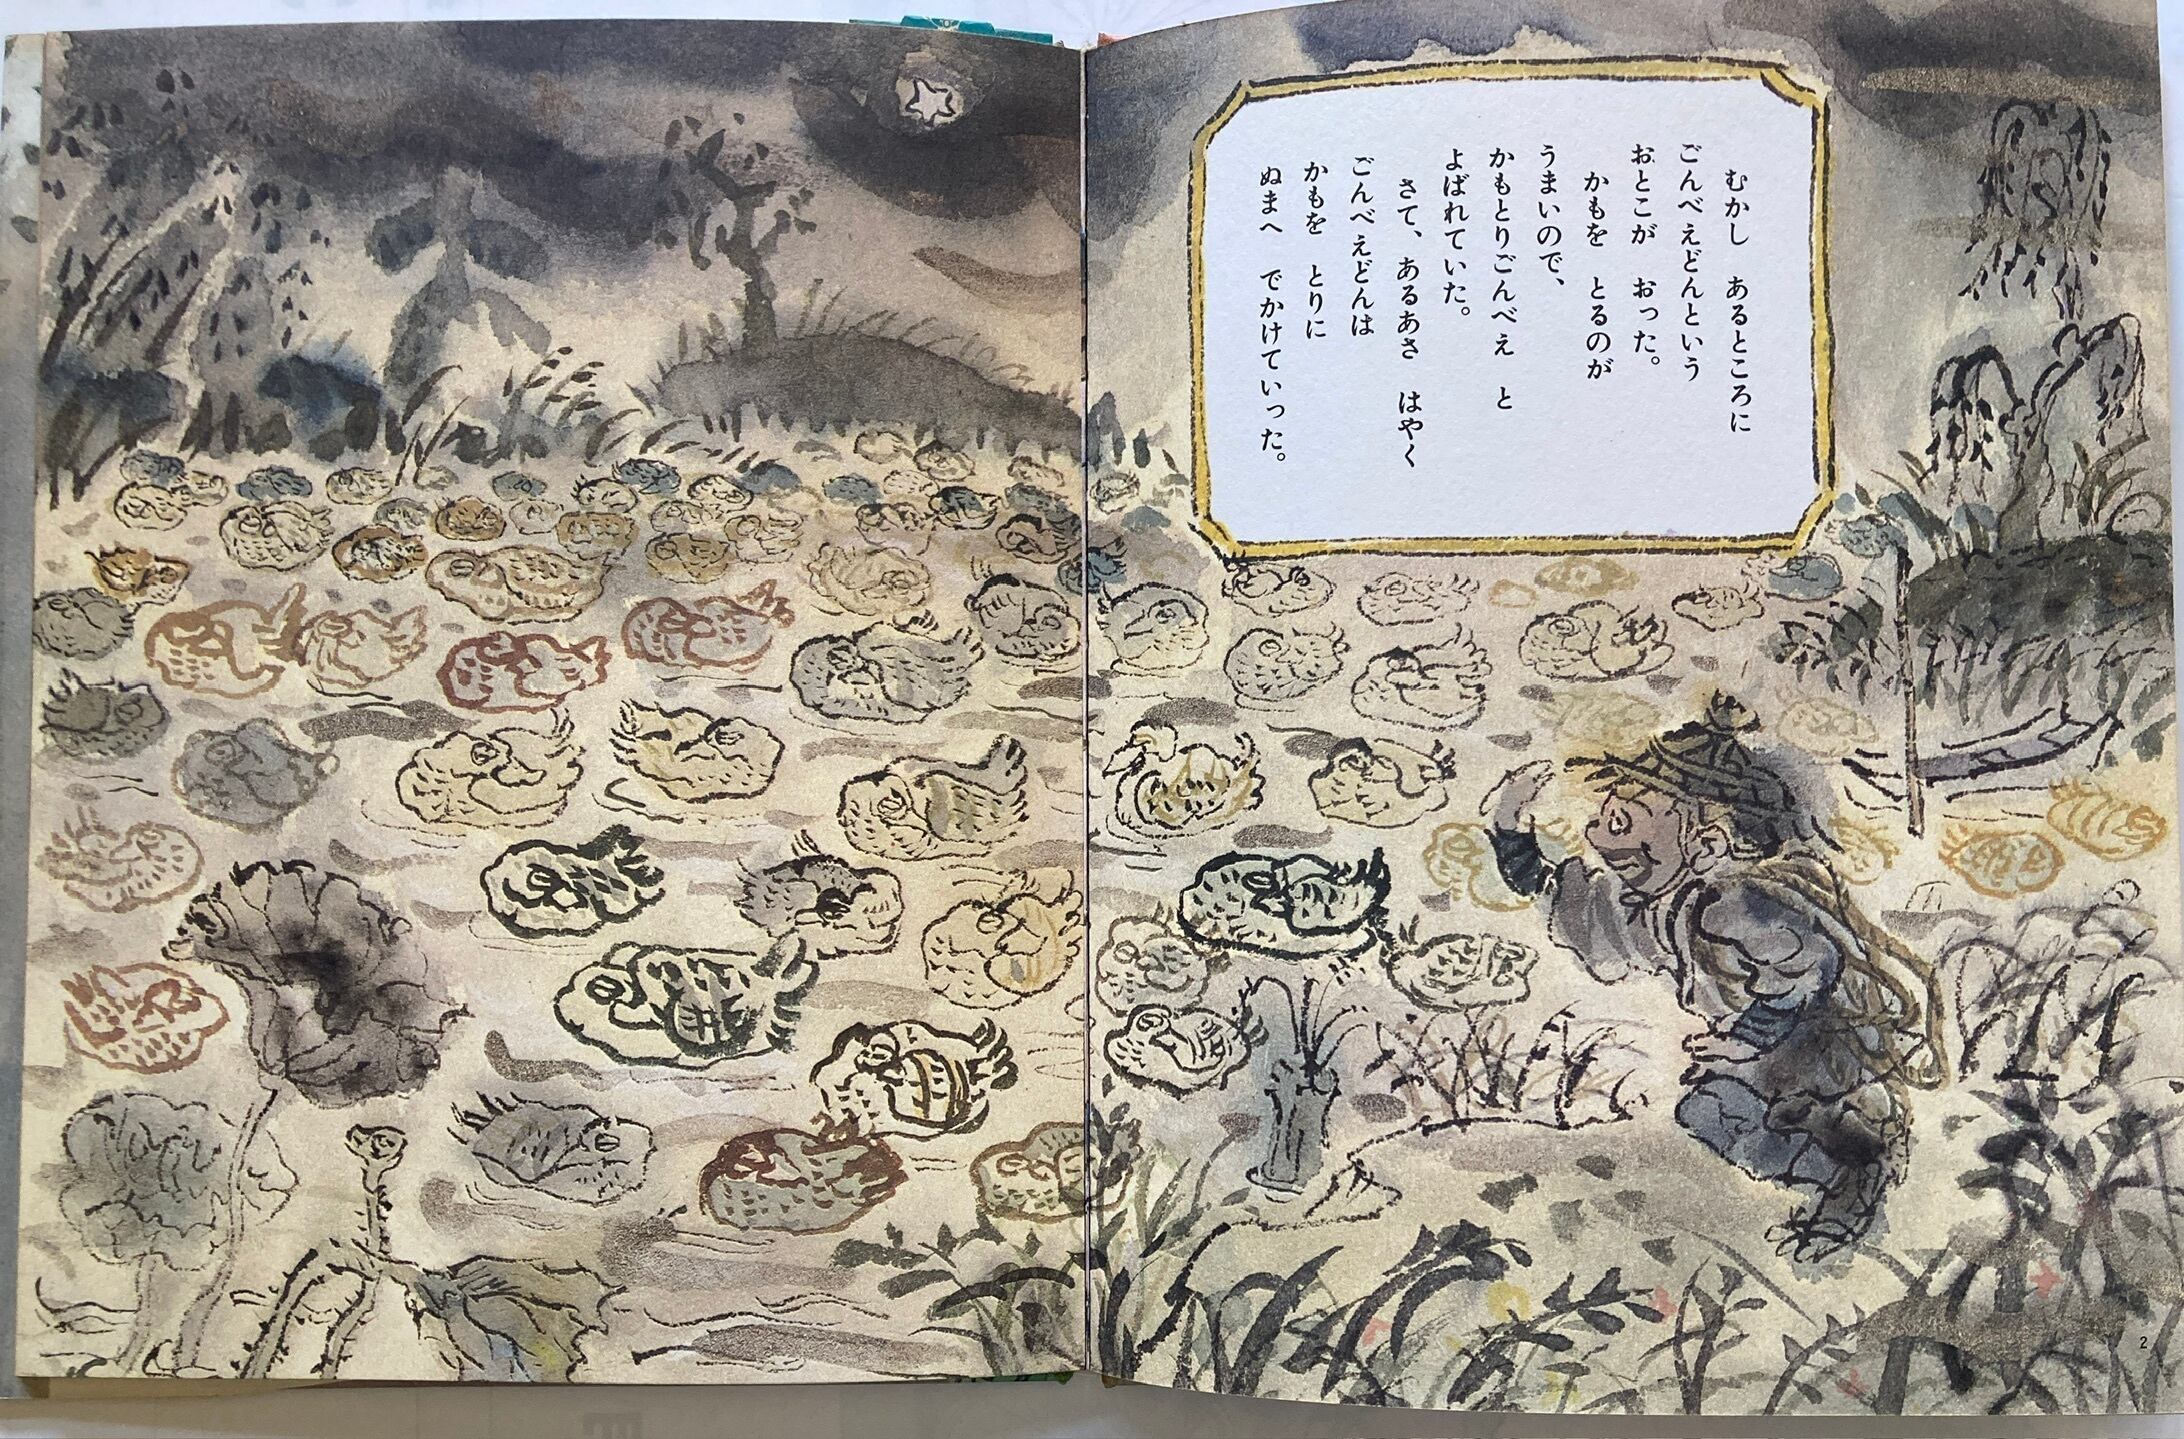 むかし　あるところに
ごんべえどんという
おとこが　おった。
かもを　とるのが
うまいので、
かもとりごんべえ　と
よばれていた。
さて、あるあさ　はやく
ごんべえどんは
かもを　とりに
ぬまへ　でかけていった。
2